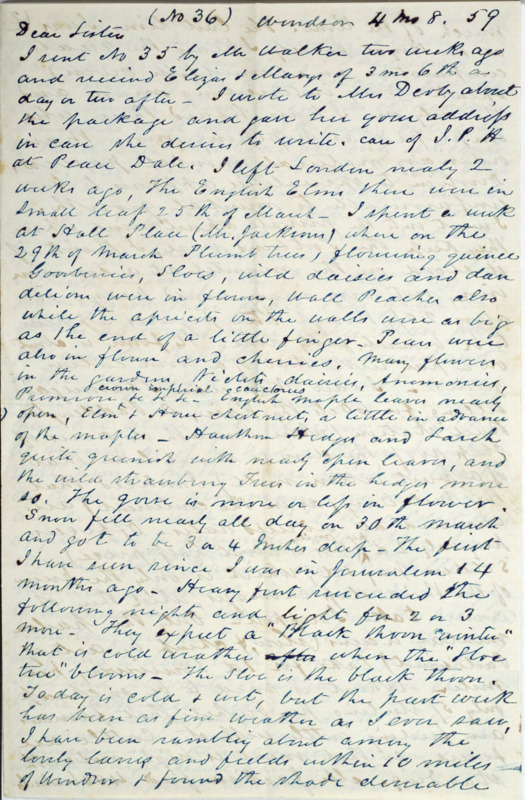 (No 36) Windsor 4 mo 8. 59
Dear Sister
I sent No 35 by Mr Walker two weeks ago
and received Elizas & Marys of 3 mo 6th a
day or two after - I wrote to Mrs Derby about
the package and gave her your address
in case she desires to write. care of I. P. H
at Peace Dale. I left London nearly 2
weeks ago, The English Elms there were in
small leaf 25th of March - I spent a week
at Hall Place (Mr. Jacksons) where on the
29th of March Plumb trees, flowering quince
Gooseberries, Sloes, wild daisies and dan
delions were in flower, Wall Peaches also
while the apricots on the walls were as big
as the end of a little finger - Pears were
also in flower and cherries. Many flowers
in the garden Violets, daisies, Anemonies,
crown imperial
Primrose &c &c &c - English maple leaves nearly
open, Elms & Horse chestnuts a little in advance
of the maples - Hawthorn Hedges and Larch
quite greenish with nearly open leaves, and
the wild strawberry Trees in the hedges more
so. The gorse is more or less in flower.
Snow fell nearly all day on 30th March
and got to be 3 or 4 Inches deep - The first
I have seen since I was in Jerusalem 14
months ago - Heavy frost succeeded the
following nights and light for 2 or 3
more - They expect a "Black thorn winter"
that is cold weather when the "Sloe
tree" blooms - The Sloe is the black thorn.
Today is cold & wet, but the past week
has been as fine weather as I ever saw,
I have been rambling about among the
lovely lanes and fields within 10 miles
of Windsor & found the shade desirable